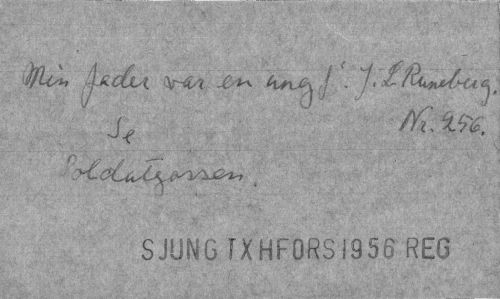 Min fader var en ung s. J. L. Runeberg.
Nr. 256.
Se
Soldatgossen.
SJUNG TXHFORS1956 REG